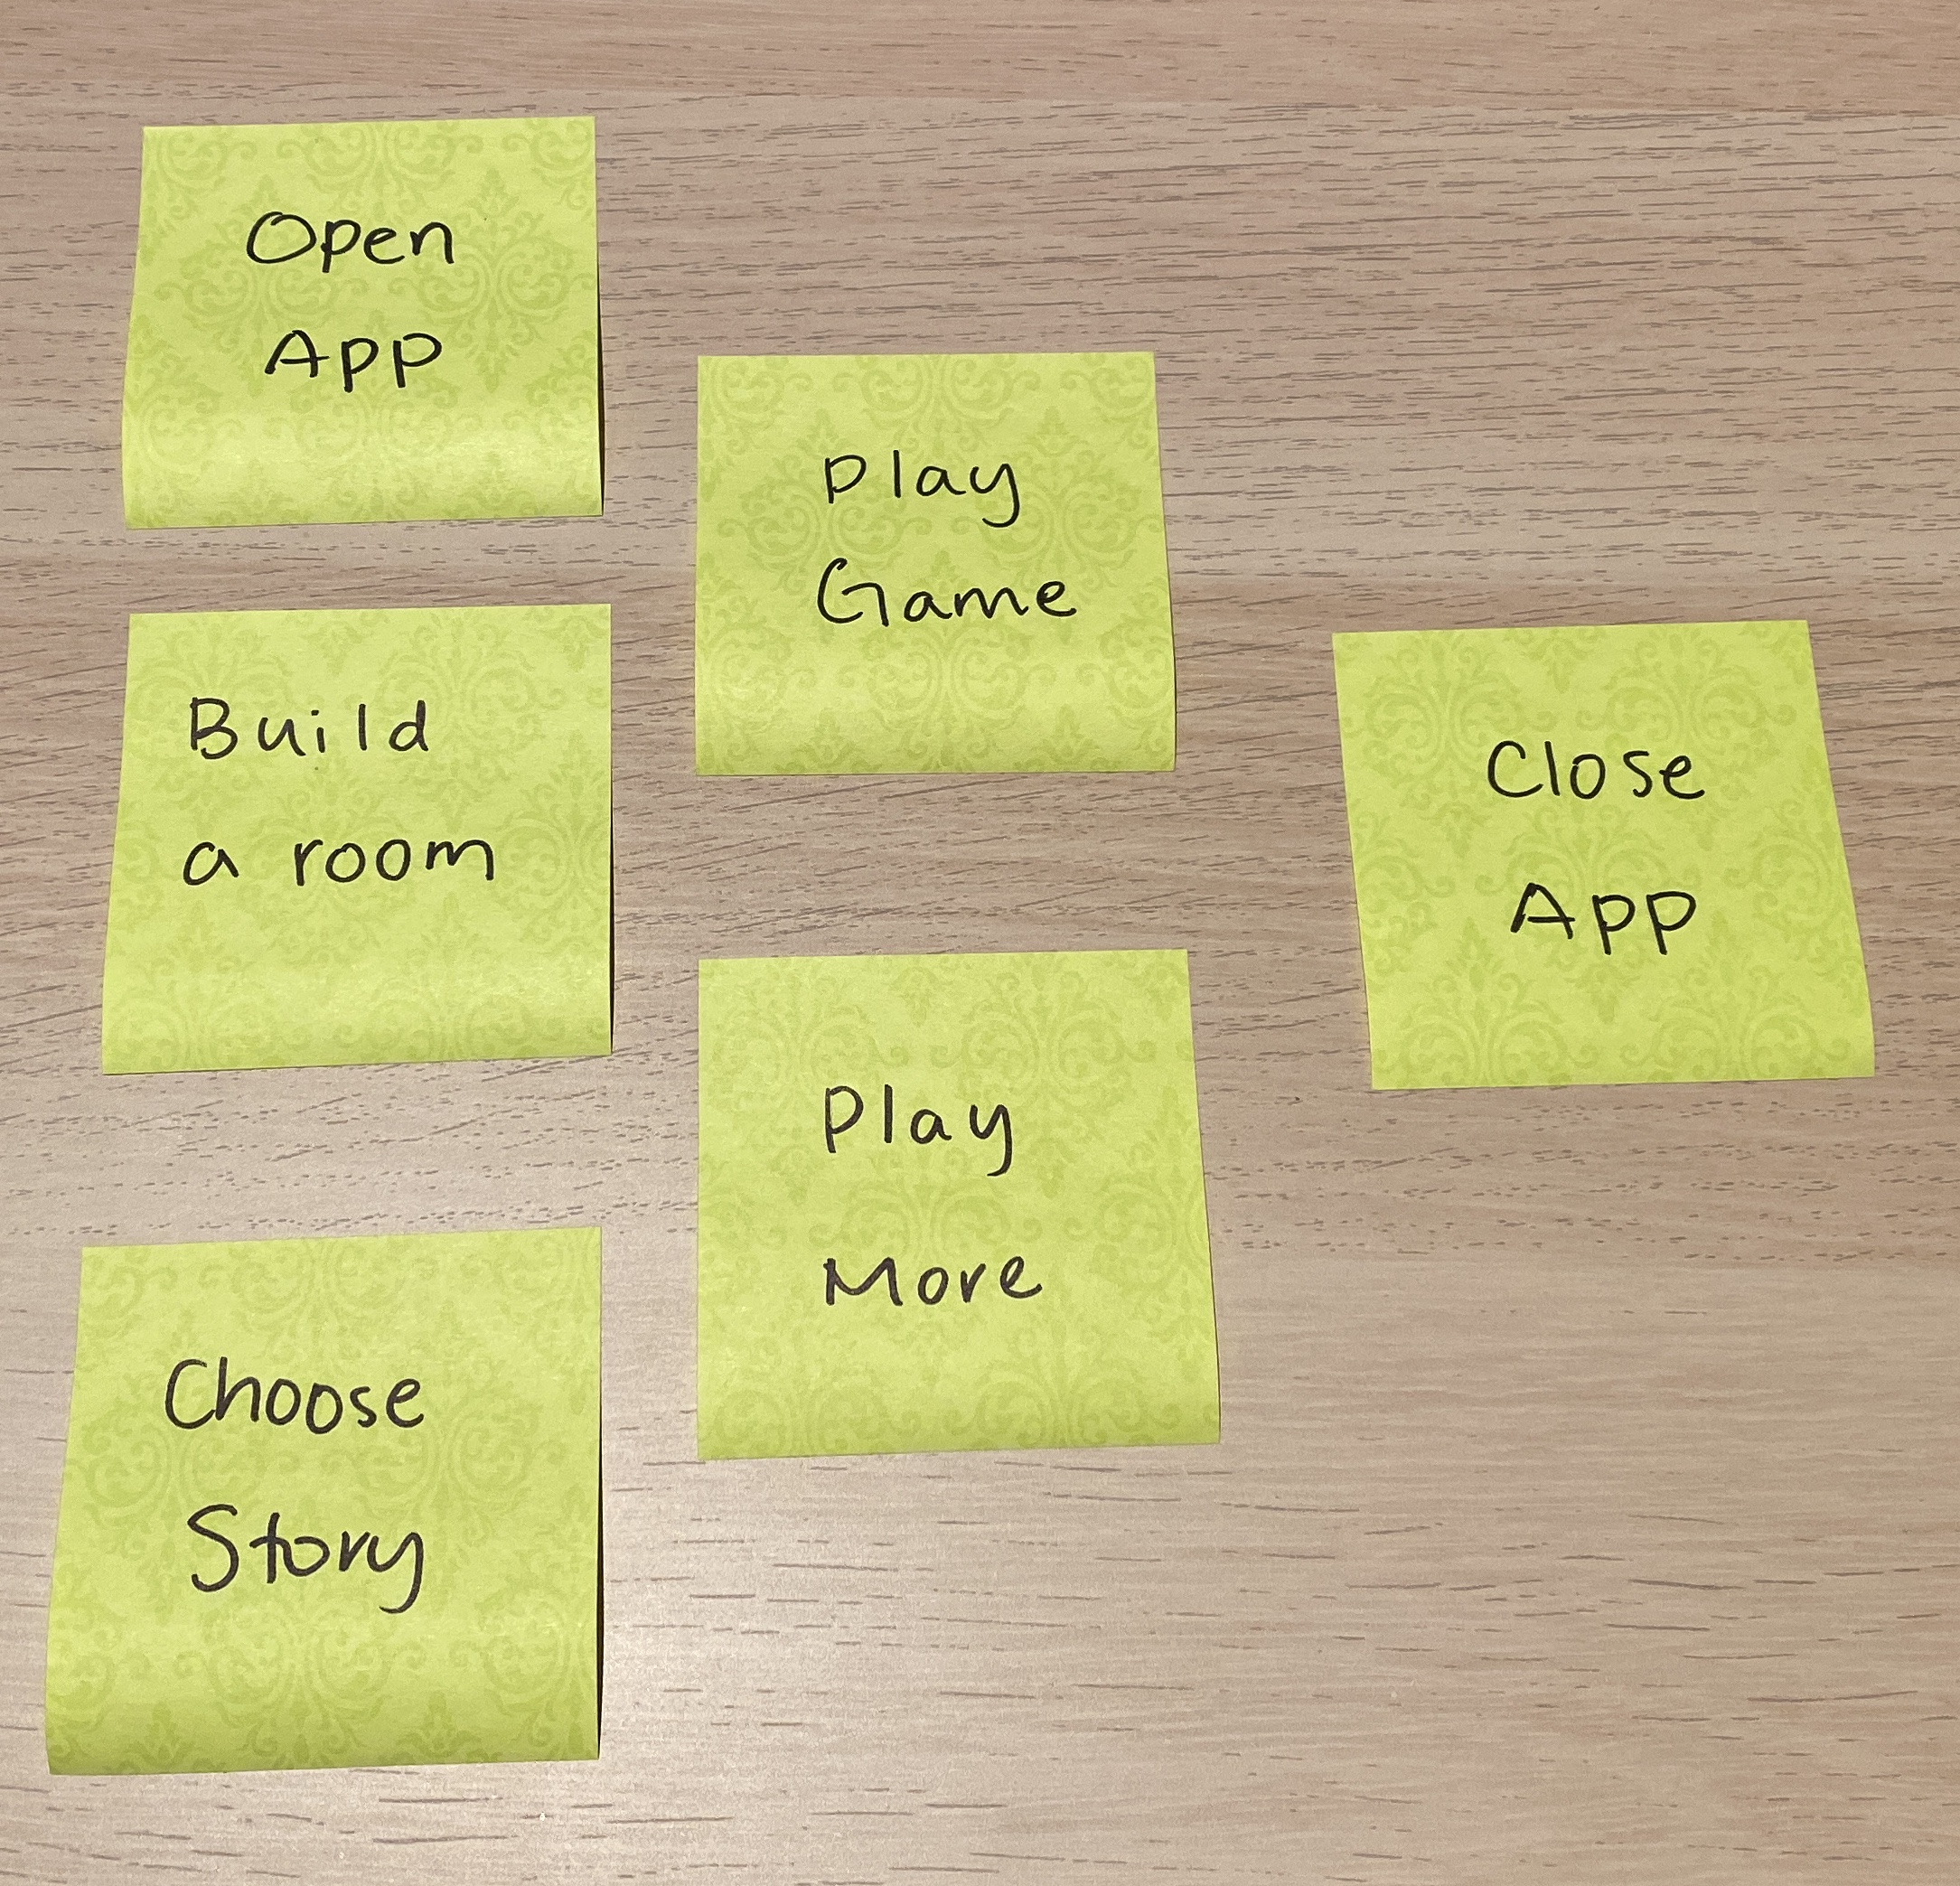 Open
App
Build
a room
Choose
Story
Play
Game
Play
More
Close
App